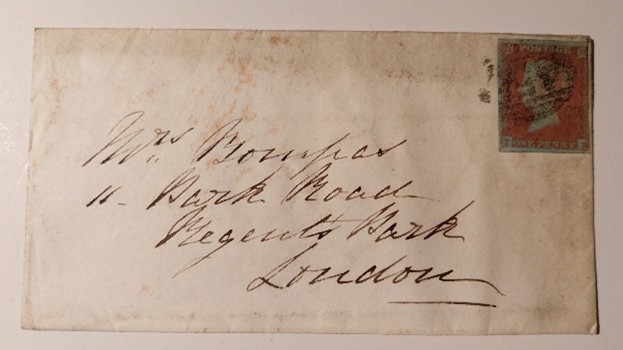 POSTAGE
ONE PENNY
Mrs Bompas
11 - Park Road
Regents Park
London